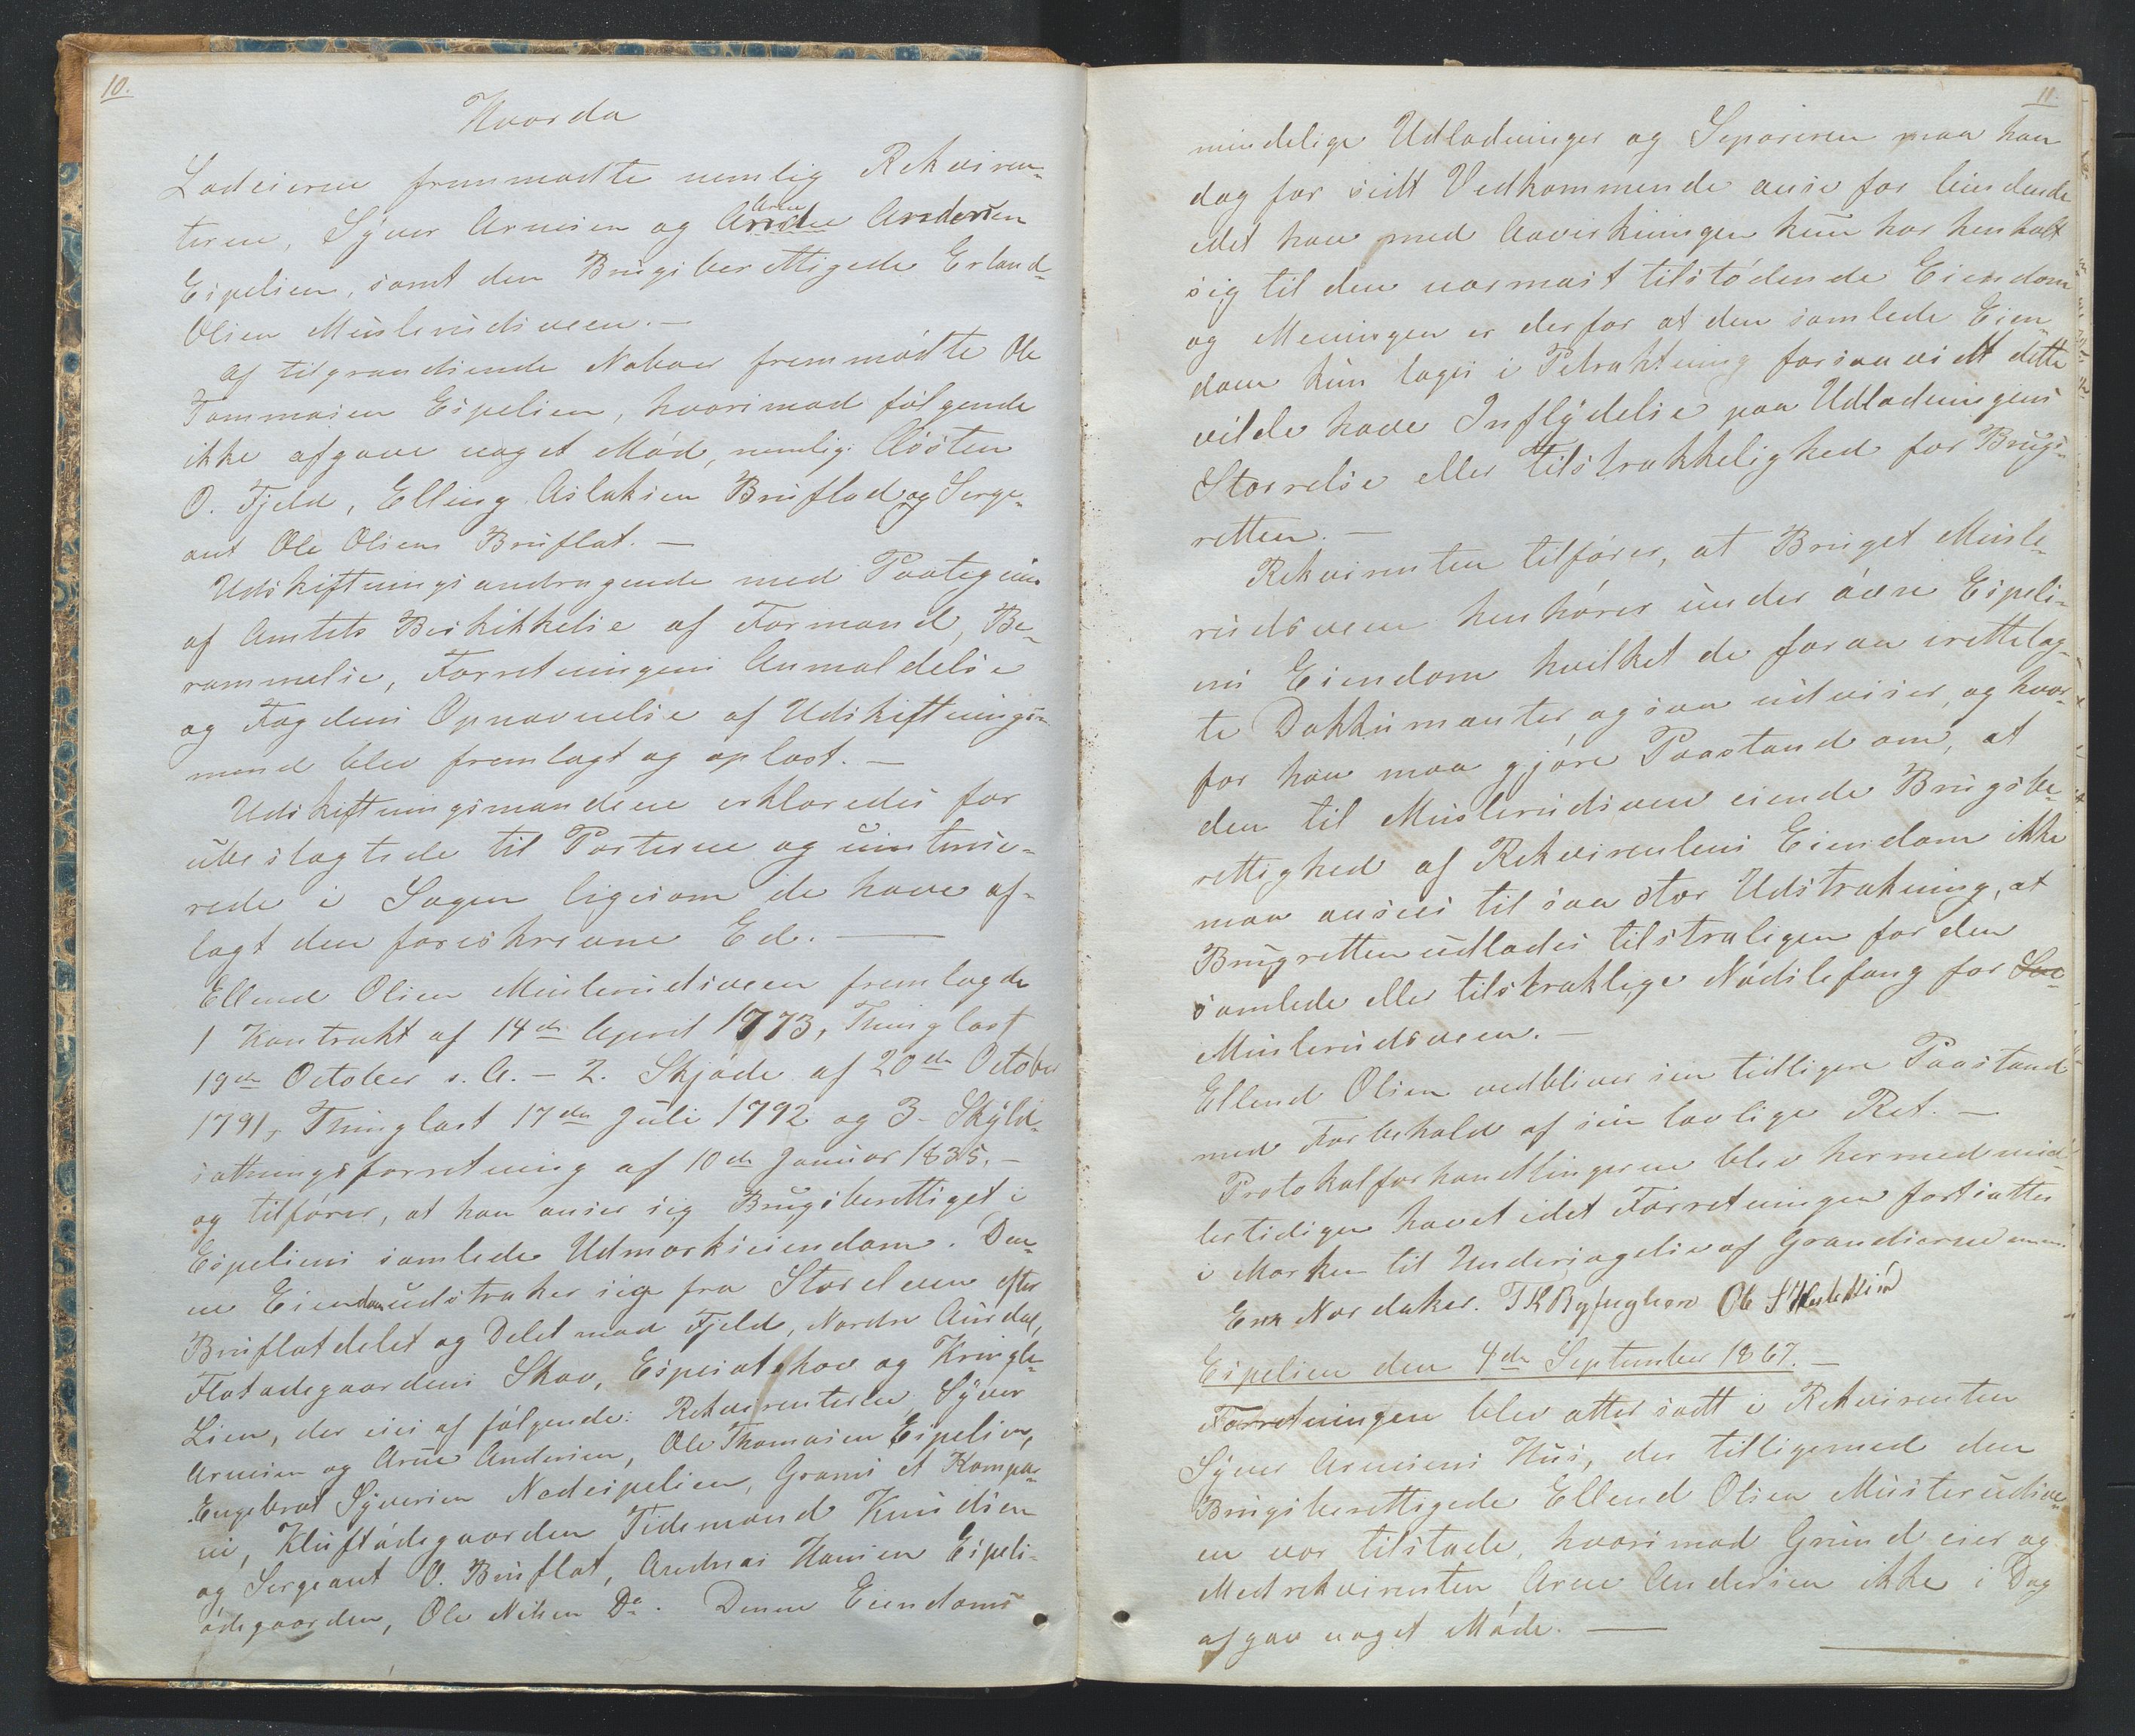 10.
Hvorda
Lodeierne fremmødte nemlig Rekviren-
terne, Syver Arnesen og Arne Andersen
Espelien, samt den Brugsberettigede Erland
Olsen Muslerudsveen.—
Af tilgrændsende Naboer fremmødte Ole
Tommasen Espelien, hvorimod følgende
ikke afgave noget Mød, nemlig: Østen
O. Fjeld, Elling Aslaksen Bruflad og Serge-
ant Ole Olsens Bruflat.—
Udskiftningsandragende med Paategn.
af Amtets Beskikkelse af Formand, Be-
rammelse, Forretningens Anmældelse
og Fogdens Opnævnelse af Udskiftnings-
mænd blev fremlagt og oplæst.—
Udskiftningsmændene erklæredes for
ubeslægtede til Parterne og uintrese-
rede i Sagen ligesom de have af-
lagt den foreskrevne Ed.—
Ellend Olsen Muslerudsveen fremlagde
1 Kontrakt af 14de April 1773, Thinglæst
19de October s. A.— 2. Skjøde af 20de October
1791, Thinglæst 17de Juli 1792 og 3– Skyld-
sætningsforretning af 10de Januar 1835,—
og tilfører, at han anser sig Brugsberettiget i
Espeliens samlede Udmarkseiendom. Den-
ne Eiendom udstrækker sig fra Storelven efter
Bruflatdelet og Delet mod Fjeld, Nordre Aurdal,
Flatødegaardens Skov, Espesætskov og Kringle-
Lien, der eies af følgende: Rekvirenterne Syver
Arnesen og Arne Andersen, Ole Thomasen Espelien,
Engebret Syversen Nedrespelien, Grams et Kompa-
ni, Kluftødegaarden Tidemand Knudsen
og Sergeant O. Bruflat, Andreas Hansen Espeli-
ødegaarden, Ole Nilsen Do. Denne Eiendoms
11.
mindelige Udladninger og Separeren maa han
dog for sidt Vedkommende anse for bindende
idet han med Aavirkningen kun har henholt
sig til den nærmast tilstødende Eiendom
og Meningen er derfor at den samlede Eien-
dom kun tages i Betraktning forsaavidt dette
vilde have Inflydelse paa Udladningens
Størrelse eller tilstrækkelighed for Brugs-
retten.—
Rekvirenten tilfører, at Bruget Musle-
rudsveen henhører under øvre Espeli-
ens Eiendom hvilket de foran irettelag-
te Dokkumenter ogsaa udviser, og hvor-
for han maa gjøre Paastand om, at
den til Muslerudsveen eiende Brugsbe-
rettighed af Rekvirentens Eiendom ikke
maa ansees til saa stor Udstrækning, at
Brugretten udlades tilstræligen for den
samlede eller tilstræklige Nødslefang for
Muslerudsveen.—
Ellend Olsen vedbliver sin tidligere Paastand
med Forbehold af sin lovlige Ret.—
Protokolforhandlingerne blev hermed mid-
lertidigen hævet idet Forretningen fortsættes
i Marken til Undersøgelse af Grændserne
Erik Nordaker. T K Byfuglien Ole S
Espelien den 4de September 1867.—
Forretningen blev atter sadt i Rekvirenten
Syver Arnesens Hus, der tilligemed den
Brugsberettigede Ellend Olsen Muslerudsve-
en var tilstæde, hvorimod Grundeier og
Medrekvirenten Arne Andersen ikke i Dag
afgav noget Møde.—